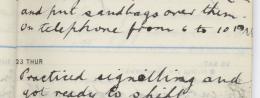 and put sandbags over them
on telephone from 6 to 10 PM
23 THUR
Practiced signalling and
got ready to shift